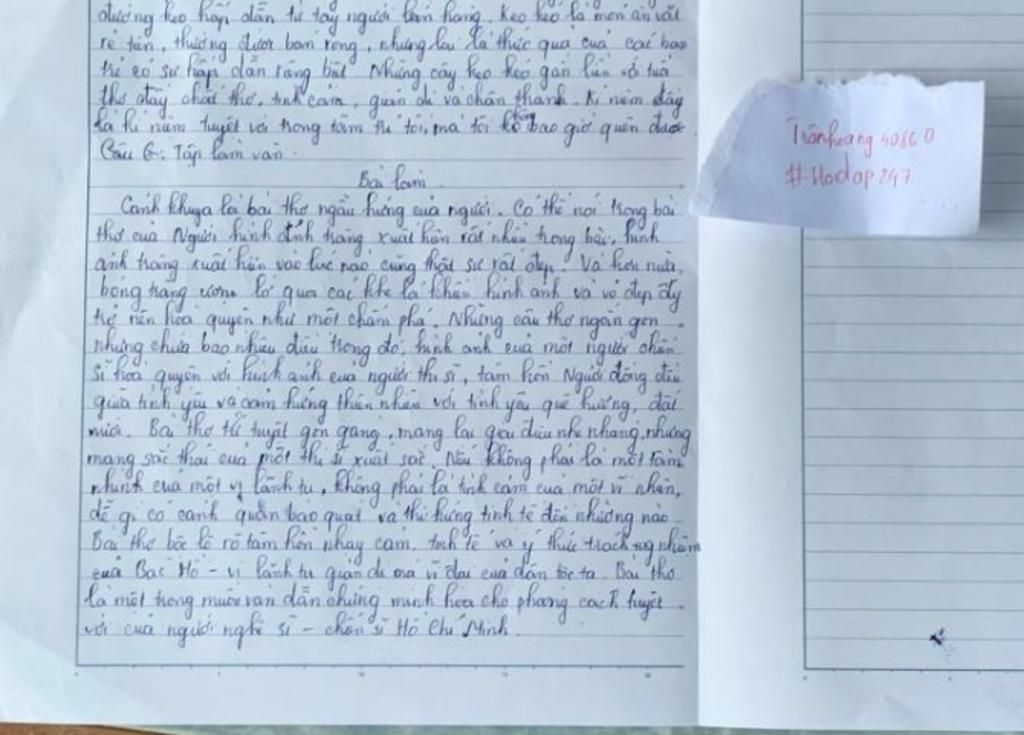 đường kẹo hấp dẫn từ tay người bán hàng. Kẹo kéo là món ăn rất
rẻ tiền, thường được bán rong, nhưng lại là thức quà của các bạn
trẻ có sự hấp dẫn riêng biệt. Những cây kẹo kéo gắn liền với tuổi
thơ đầy chất thơ, tình cảm, giản dị và chân thành. Kỉ niệm đây
là kỉ niệm tuyệt vời trong tâm trí tôi, mà tôi ko bao giờ quên được
Câu 6: Tập làm văn.
Bài làm
Cảnh khuya là bài thơ ngẫu hứng của người. Có thể nói trong bài
thơ của Người hình ảnh trăng xuất hiện rất nhiều trong bài, hình
ảnh trăng xuất hiện vào lúc nào cũng thật sự rất đẹp. Và hơn nữa,
bóng trăng vương ló qua các khe lá khiến hình ảnh và vẻ đẹp ấy
trở nên hoà quyện như một chấm phá. Những câu thơ ngắn gọn
nhưng chứa bao nhiêu điều trong đó, hình ảnh của một người chiến
sĩ hoà quyện với hình ảnh của người thi sĩ, tâm hồn Người đồng điệu
giữa tình yêu và cảm hứng thiên nhiên với tình yêu quê hương, đất
nước. Bài thơ tứ tuyệt gọn gàng, mang lại giai điệu nhẹ nhàng, nhưng
mang sắc thái của một thi sĩ xuất sắc. Nếu không phải là một tầm
nhình của một vị lãnh tụ, không phải là tình cảm của một vĩ nhân,
dễ gì có cảnh quan bao quát và thi hứng tinh tế đến nhường nào.
Bài thơ bộc lộ rõ tâm hồn nhạy cảm, tinh tế và ý thức trách nhiệm
của Bác Hồ - vị lãnh tụ giản dị mà vĩ đại của dân tộc ta. Bài thơ
là một trong muôn vàn dẫn chứng minh hoạ cho phong cách tuyệt
vời của người nghệ sĩ - chiến sĩ Hồ Chí Minh.
Trânhoang 40860
#Hodap247